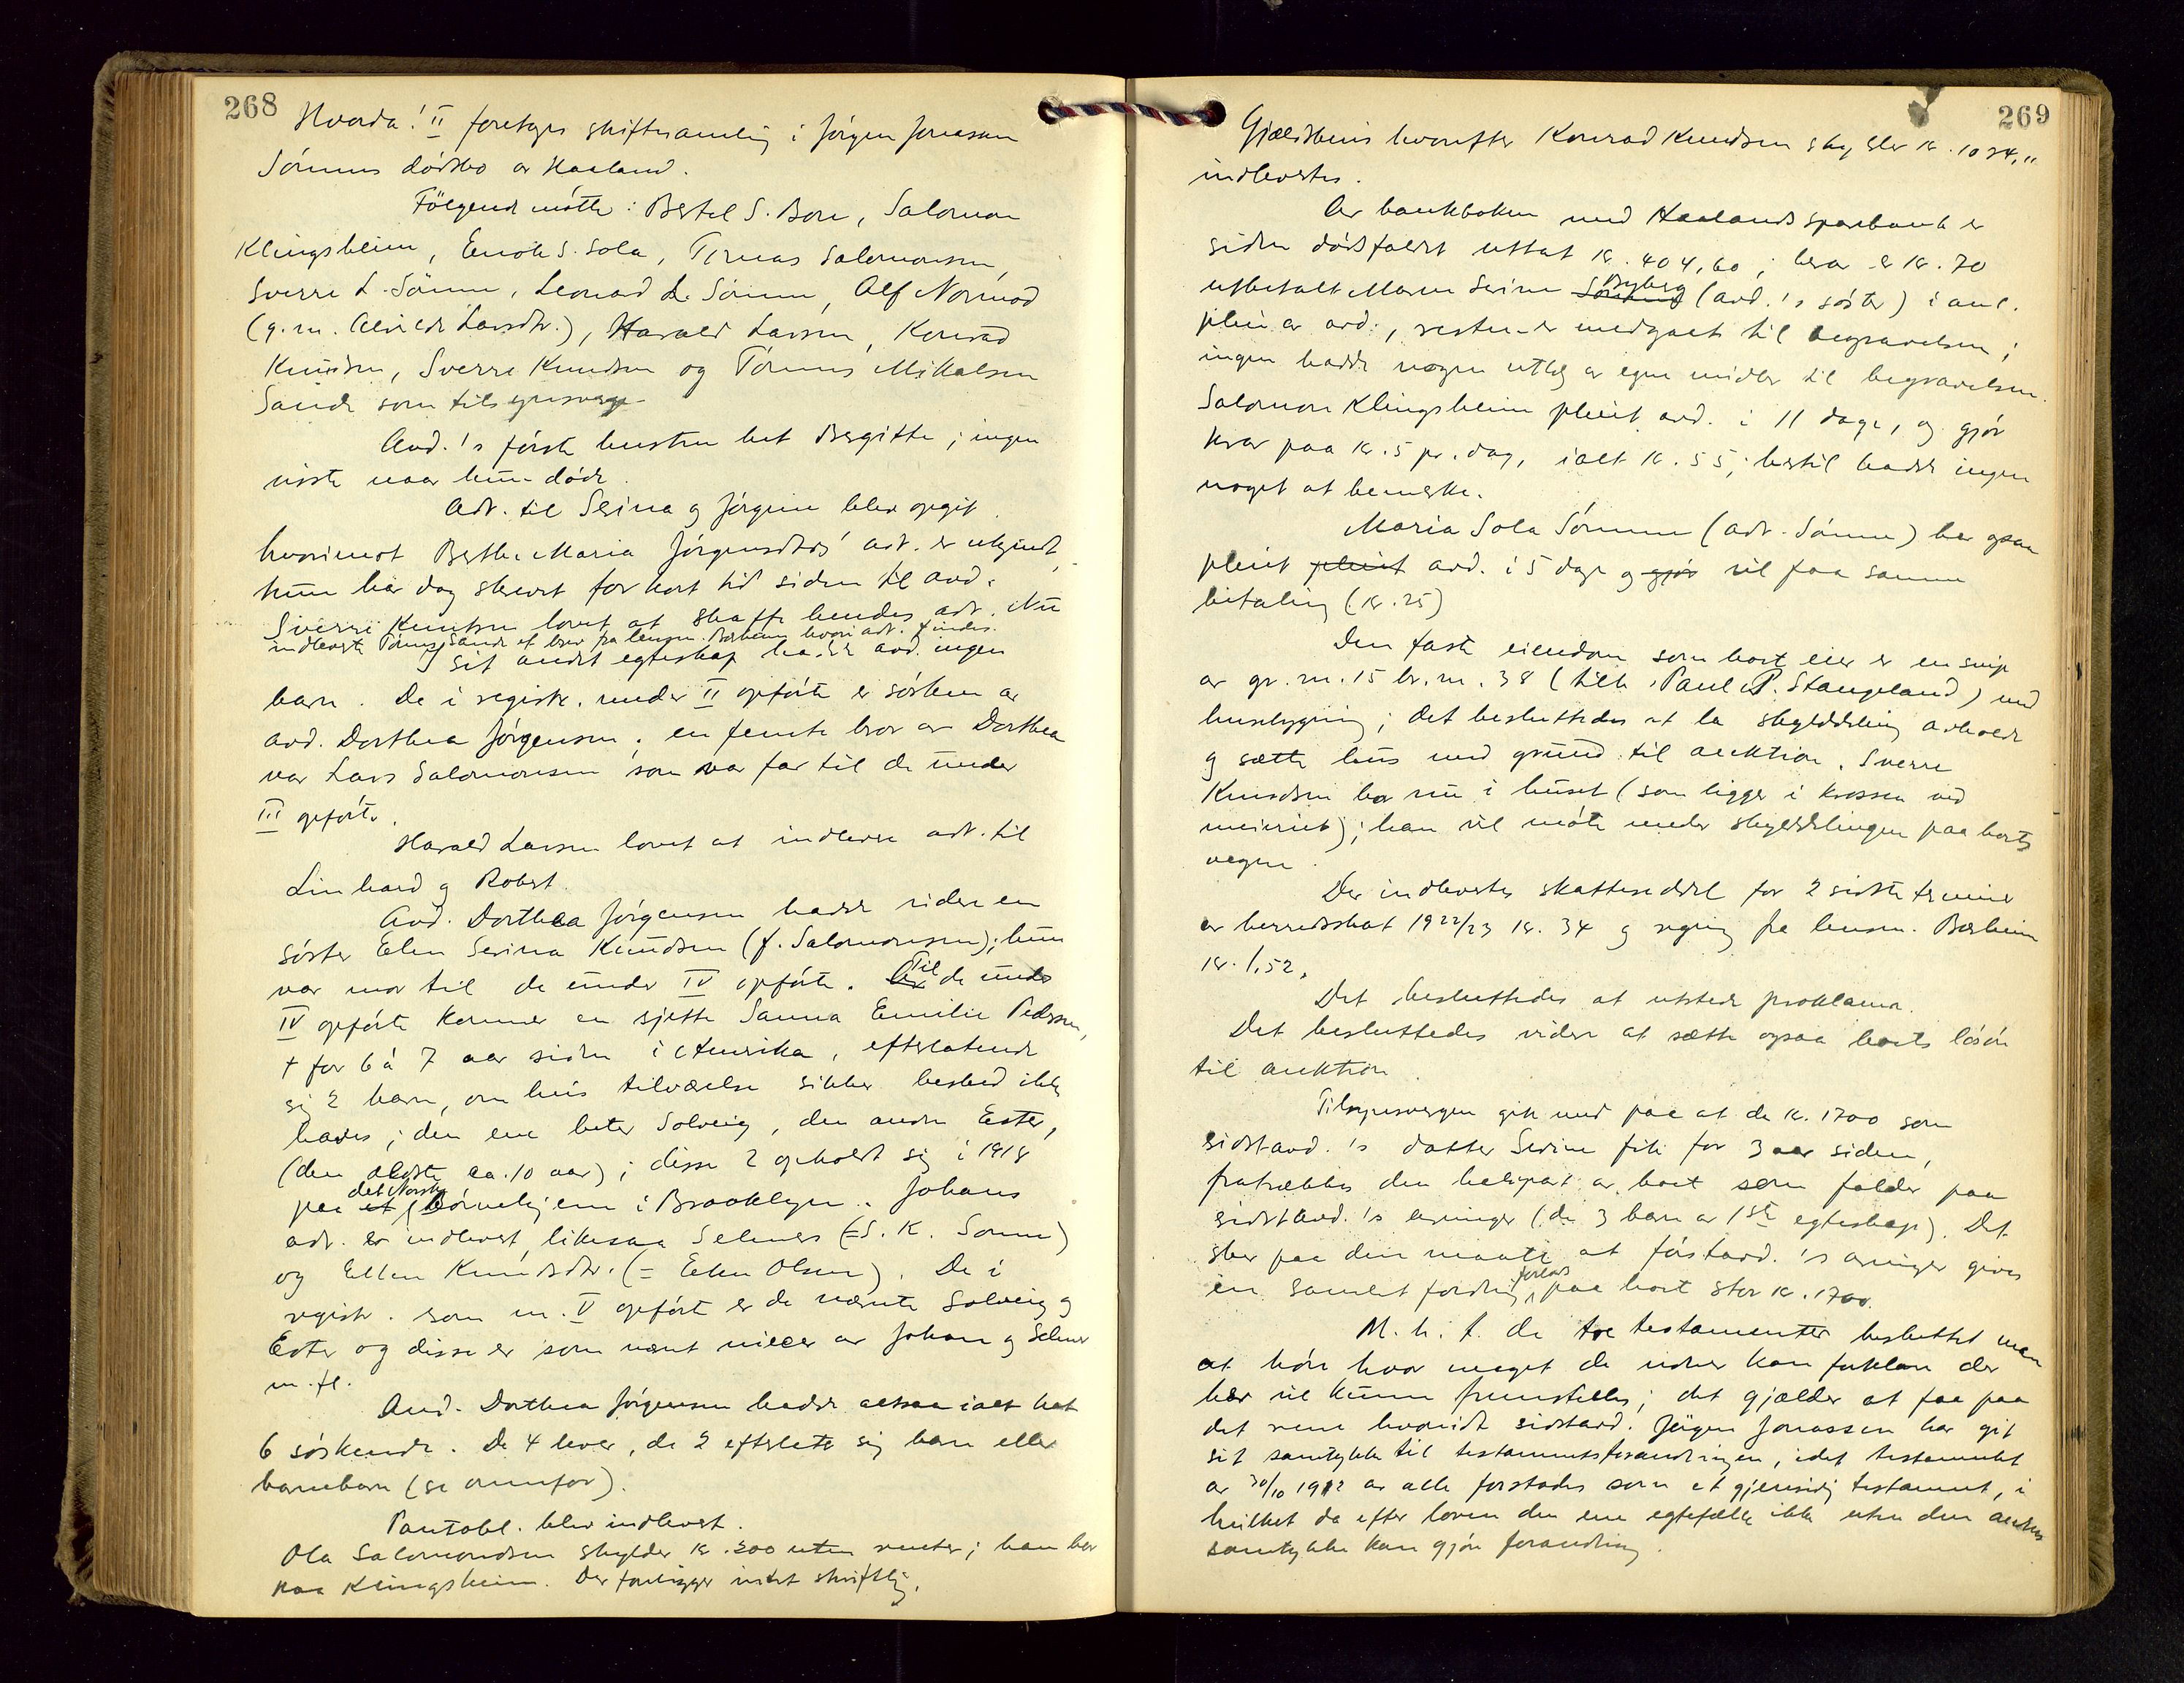 268
Hvorda! II foretoges skiftesamling i Jørgen Jonassen
Sømmes dødsbo av Haaland.
Følgende møtte: Bertel S. Bore, Salomon
Klingsheim, Enok S. Sola, Tomas Salomonsen,
Sverre L. Sømme, Leonard L. Sømme, Alf Normod
(g. m. Alvilde Larsdtr.), Harald Larsen, Konrad
Knudsen, Sverre Knudsen og Tønnes Mikalsen
Sande som tilsynsverge.
Avd.'s første hustru het Bergitte; ingen
visste naar hun døde.
Adr. til Serina og Jørgine blev opgit
hvorimot Berthe Maria Jørgensdtrs' adr. er ukjendt,
hun har dog skrevet for kort tid siden til avd.
Sverre Knudsen lovet at skaffe hendes adr. Nu
indleverte Tønnes Sande et brev fra lensm. Bærheim hvori adr. findes.
I sit andet egteskap hadde avd. ingen
barn. De i registr. under II opførte er søsken av
avd. Dorthea Jørgensen; en femte bror av Dorthea
var Lars Salomonsen som var far til de under
III opførte.
Harald Larsen lovet at indlevere adr. til
Linhard og Robert.
Avd. Dorthea Jørgensen hadde videre en
søster Elen Serina Knudsen (f. Salomonsen); hun
var mor til de under IV opførte. Av Til de under
IV opførte kommer en sjette Sanna Emilie Pedersen,
† for 6 à 7 aar siden i Amerika, efterlatende
sig 2 barn, om hvis tilværelse sikker besked ikke
haves; den ene heter Solveig, den andre Ester,
(den ældste ca. 10 aar); disse 2 opholdt sig i 1918
paa et det Norske Børnehjem i Brooklyn. Johans
adr. er indlevert, likesaa Selmers (= S. K. Somm)
og Ellen Knudsdtr. (= Elen Olsen). De i
registr. som nr. V opførte er de nævnte Solveig og
Ester og disse er som nævnt niecer av Johan og Selmer
m. fl.
Avd. Dorthea Jørgensen hadde altsaa ialt hat
6 søskende. De 4 lever, de 2 efterlate sig barn eller
barnebarn (se ovenfor).
Pantobl. blev indlevert.
Ola Salomonsen skylder kr. 300 uten renter; han bor
paa Klingsheim. Der foreligger intet skriftlig.
269
Gjældsbevis hvorefter Konrad Knudsen skylder kr. 1034,"
indlevertes.
Av bankboken med Haalands sparebank er
siden dødsfaldet uttat kr. 404,60; herav er kr. 70
utbetalt Maren Serine Sømme Byberg (avd.'s søster) i anl.
pleie av avd., resten er medgaat til begravelsen;
ingen hadde nogen utlæg av egne midler til begravelsen.
Salomon Klingsheim pleiet avd. i 11 dage, og gjør
krav paa kr. 5 pr. dag, ialt kr. 55; hertil hadde ingen
noget at bemerke.
Maria Sola Sømme (adr. Sømme) har ogsaa
pleiet pleiet avd. i 5 dage og gjør vil faa samme
betaling (kr. 25)
Den faste eiendom som boet eier er en snip
av gr. nr. 15 br. nr. 38 (tilh. Paul P. Stangeland) med
husebygning; det besluttedes at la skylddeling avholde
og sætte hus med grund til auktion. Sverre
Knudsen bor nu i huset (som ligger i krossen ved
meieriet); han vil møte under skylddelingen paa boets
vegne.
Der indlevertes skatteseddel for 2 sidste terminer
av herredsskat 1922/23 kr. 34 og regning fra lensm. Bærheim
kr. 1,52.
Det besluttedes at utstede proklama.
Det besluttedes videre at sætte ogsaa boets løsøre
til auktion.
Tilsynsvergen gik med paa at de kr. 1700 som
sidstavd.'s datter Serine fik for 3 aar siden,
fratrækkes den halvpart av boet som falder paa
sidstavd.'s arvinger (de 3 barn av 1ste egteskap). Det
sker paa den maate at førstavd.'s arvinger gives
en samlet fordring forlods paa boet stor kr. 1700.
M. h. t. de to testamenter besluttet man
at høre hvor meget de vidner kan forklare der
her vil kunne fremstilles; det gjælder at faa paa
det rene hvorvidt sidstavd. Jørgen Jonassen har git
sit samtykke til testamentsforandringen, idet testamentet
av 30/10 1912 av alle forstodes som et gjensidig testament, i
hvilket da efter loven den ene egtefælle ikke uten den andens
samtykke kan gjøre forandring.